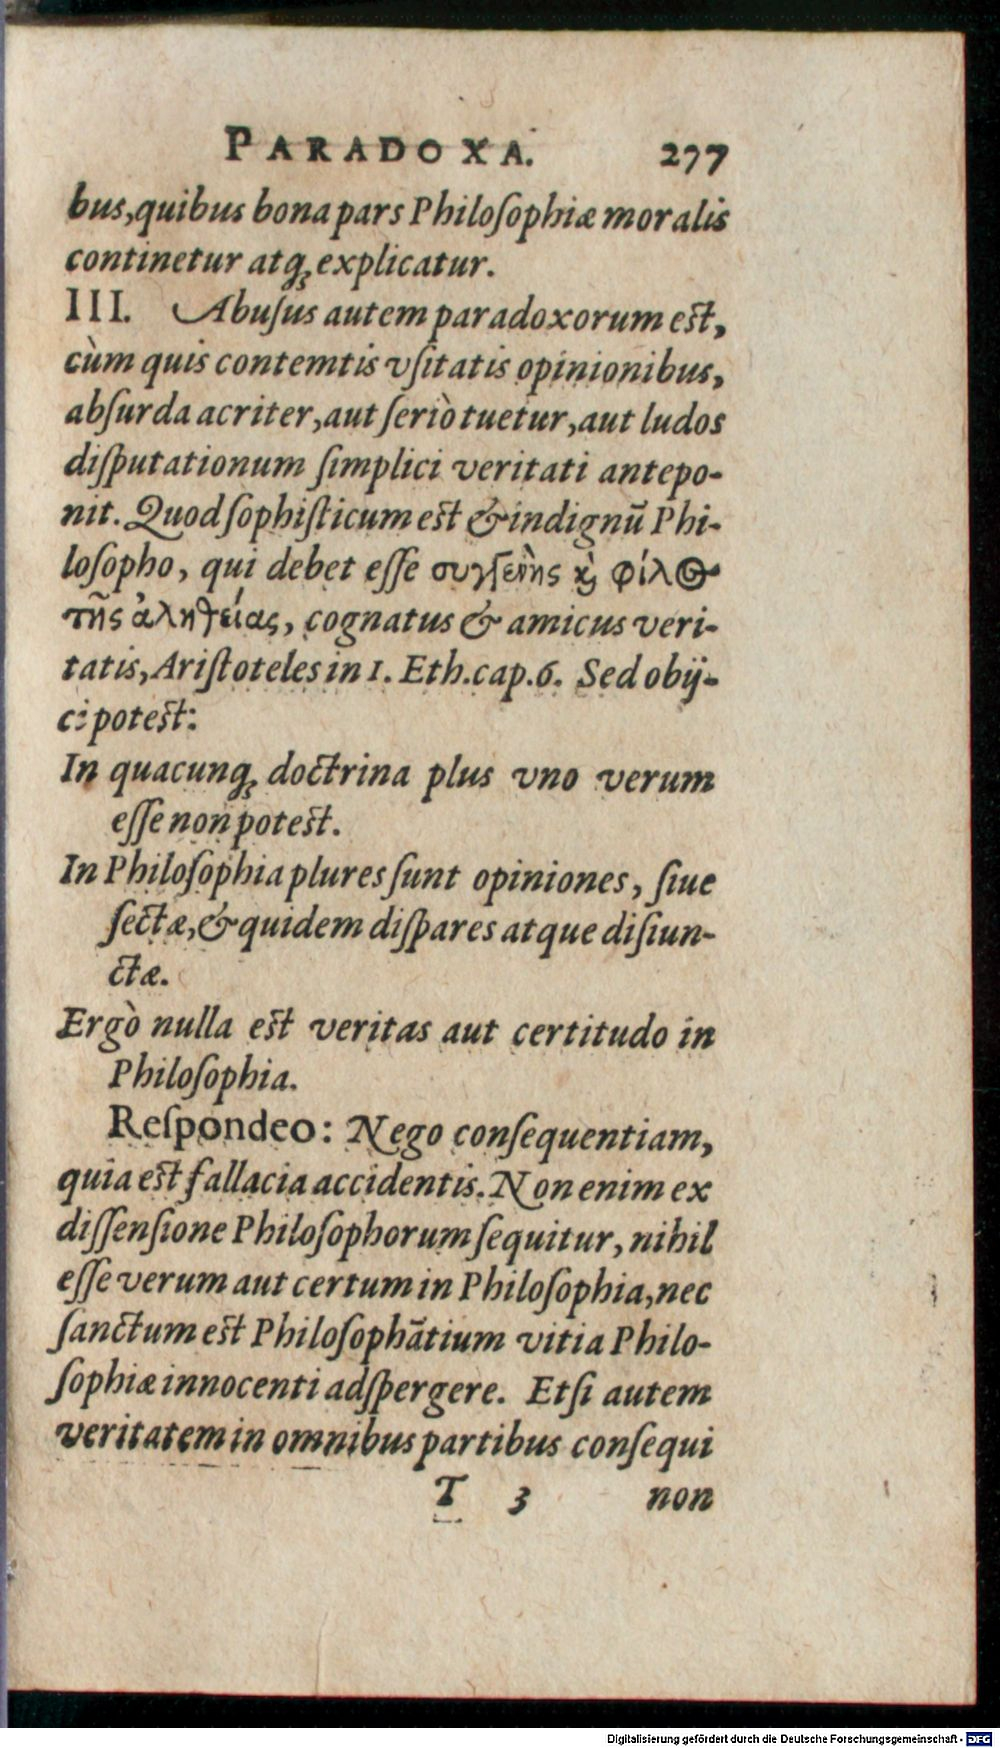 PARADOXA. 277
bus, quibus bona pars Philoſophiæ moralis
continetur atq́; explicatur.
III. Abuſus autem paradoxorum eſt,
cùm quis contemtis vſitatis opinionibus,
abſurda acriter, aut ſeriò tuetur, aut ludos
diſputationum ſimplici veritati antepo-
nit. Quod ſophiſticum eſt & indignũ Phi-
loſopho, qui debet eſſe συγγενὴς ϗ φίλος
τῆς ἀληθείας, cognatus & amicus veri-
tatis, Ariſtoteles in 1. Eth. cap. 6. Sed obij-
ci poteſt:
In quacunq; doctrina plus vno verum
eſſe non poteſt.
In Philoſophia plures ſunt opiniones, ſiue
ſectæ, & quidem diſpares atque diſiun-
ctæ.
Ergò nulla eſt veritas aut certitudo in
Philoſophia.
Reſpondeo: Nego conſequentiam,
quia eſt fallacia accidentis. Non enim ex
diſſenſione Philoſophorum ſequitur, nihil
eſſe verum aut certum in Philoſophia, nec
ſanctum eſt Philoſophãtium vitia Philo-
ſophiæ innocenti adſpergere. Etſi autem
veritatem in omnibus partibus conſequi
T 3 non
Digitalisierung gefördert durch die Deutsche Forschungsgemeinschaft - DFG